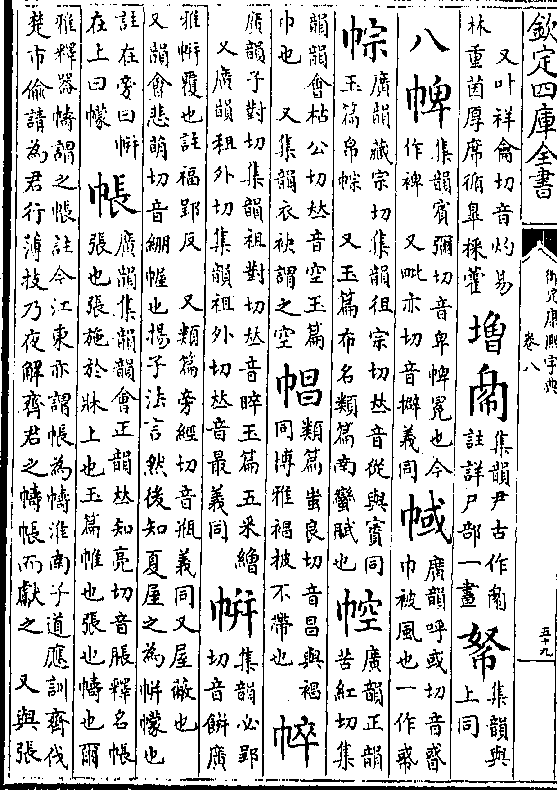 欽定四庫全書
御定康熙字典
卷八
五十九
又叶祥龠切音灼易
林重茵厚席循臯採藿
增
集韻尹古作
註詳尸部一畫
帤
集韻與
上同
八
集韻賓彌切音卑㡙冕也今
作裨 又毗亦切音擗義同
廣韻呼或切音
巾被風也一作
廣韻藏宗切集韻徂宗切𠀤音從與賨同
玉篇帛幏 又玉篇布名類篇南蠻賦也
廣韻正韻
苦紅切集
韻韻會枯公切𠀤音空玉篇
巾也 又集韻衣袂謂之空
類篇蚩良切音昌與裮
同博雅裮被不帶也
廣韻子對切集韻祖對切𠀤音晬玉篇五采繒
又廣韻祖外切集韻祖外切𠀤音最義同
帡
集韻必郢
切音餅廣
雅帡覆也註福郢反 又類篇旁經切音瓶義同又屋蔽也
又韻會悲萌切音綳幄也揚子法言然後知夏屋之為帡幪也
註在旁曰帡
在上曰幪
帳
廣韻集韻韻會正韻𠀤知亮切音脹釋名帳
張也張施於牀上也玉篇帷也張也幬也爾
雅釋器幬謂之帳註今江東亦謂帳為幬淮南子道應訓齊伐
楚市偷請為君行薄技乃夜解齊君之幬帳而獻之 又與張